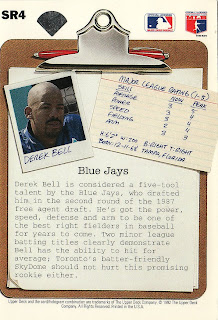 SR4
MAJOR LEAGUE GRADING (1-5)
SKILL NOW PEAK
AVERAGE 3 4
POWER
SPEED
FIELDING
ARM
6'2" W-200 B-RIGHT T-RIGHT
BORN: 12-11-68 TAMPA, FLORIDA
DEREK BELL
Blue Jays
Derek Bell is considered a five-tool
talent by the Blue Jays, who drafted
him in the second round of the 1987
free agent draft. He's got the power,
speed, defense and arm to be one of
the best right fielders in baseball
for years to come. Two minor league
batting titles clearly demonstrate
Bell has the ability to hit for
average; Toronto's batter-friendly
SkyDome should not hurt this promising
rookie either.
Upper Deck and the card/hologram combination are trademarks of The Upper Deck Company. © 1992 The Upper Deck Company.
All Rights Reserved. Printed in the U.S.A.